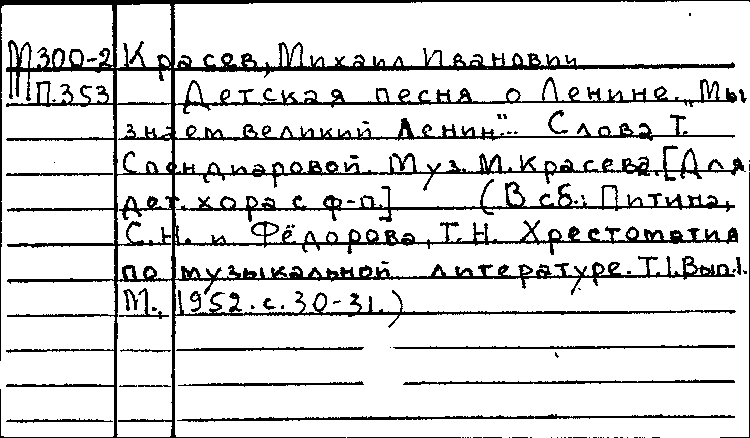 М300-2 Красев, Михаил Иванович
П.353 Детская песня о Ленине. „Мы
знаем великий Ленин"... Слова Т.
Спендиаровой. Муз. М. Красева. [Для
дет. хора с ф-п.] (В сб.: Питина,
С.Н. и Фёдорова, Т.Н. Хрестоматия
по музыкальной литературе. Т.1. Вып.1.
М., 1952. с. 30-31.)